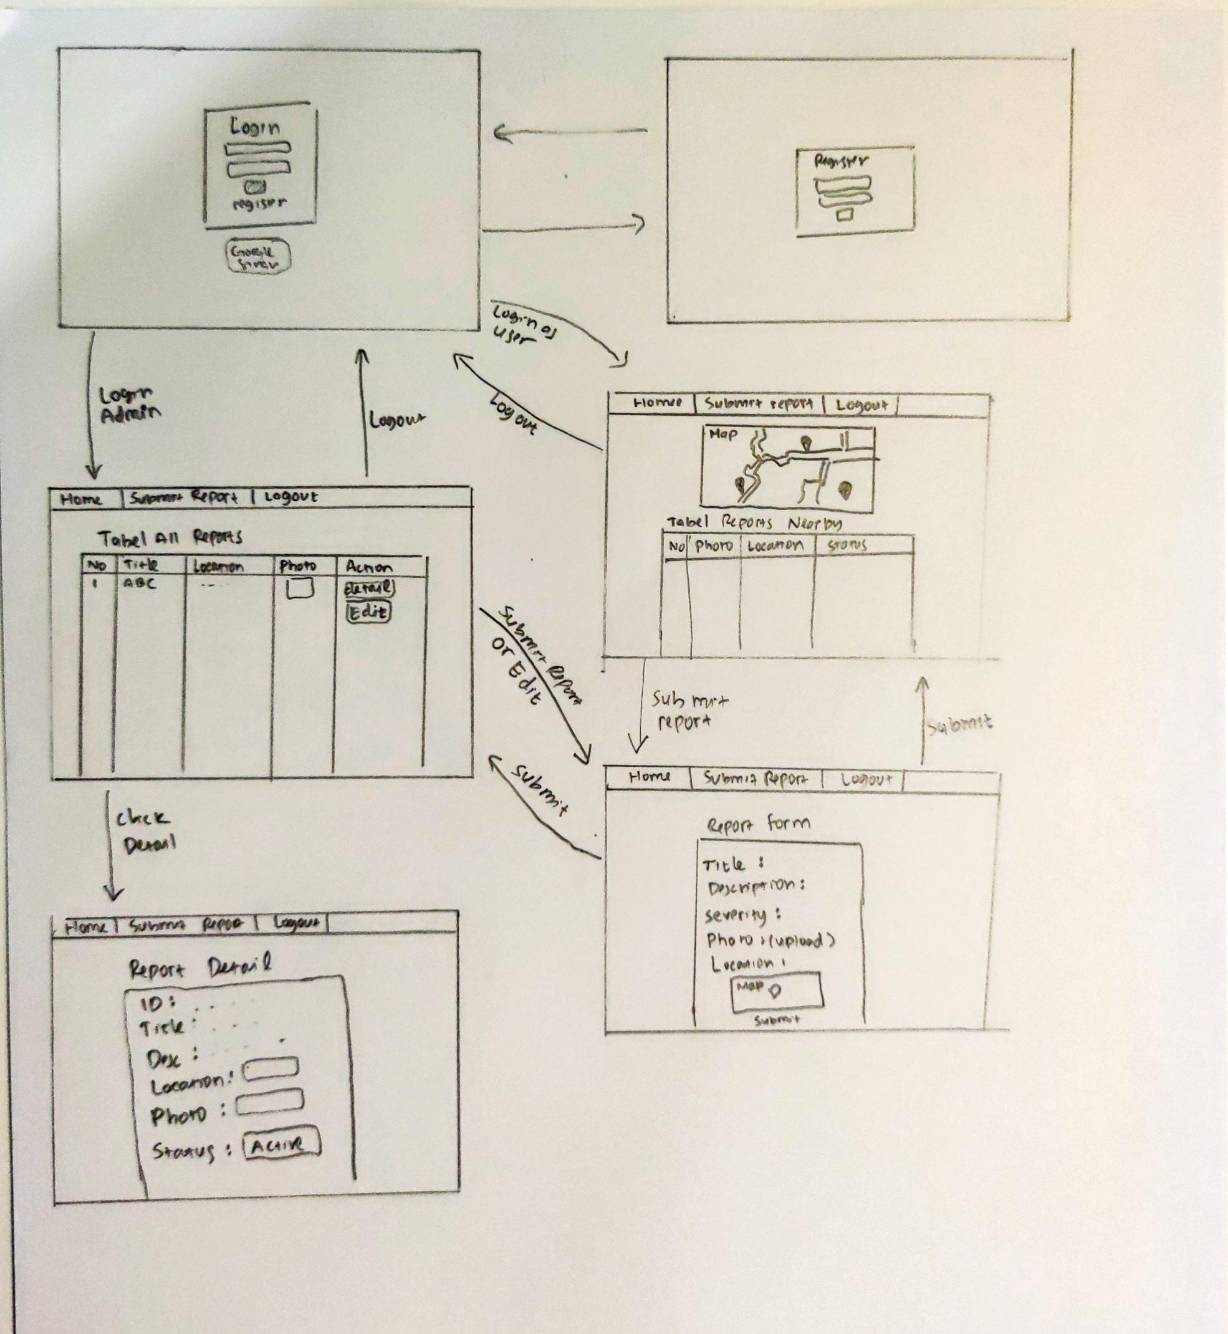 Login
register
Google
Register
Login as
user
Logout
Login
Admin
Logout
Home Submit report Logout
Map
Tabel Reports Nearby
No Photo Location Status
Home Submit Report Logout
Tabel All Reports
No Title Location Photo Action
1 ABC ---- Detail
Edit
Submit Report
or Edit
Submit
report
Submit
Submit
Home Submit Report Logout
Report Form
Title :
Description :
Severity :
Photo : (upload)
Location :
Map
Submit
Click
Detail
Home Submit Report Logout
Report Detail
ID :
Title
Desc :
Location :
Photo :
Status : Active